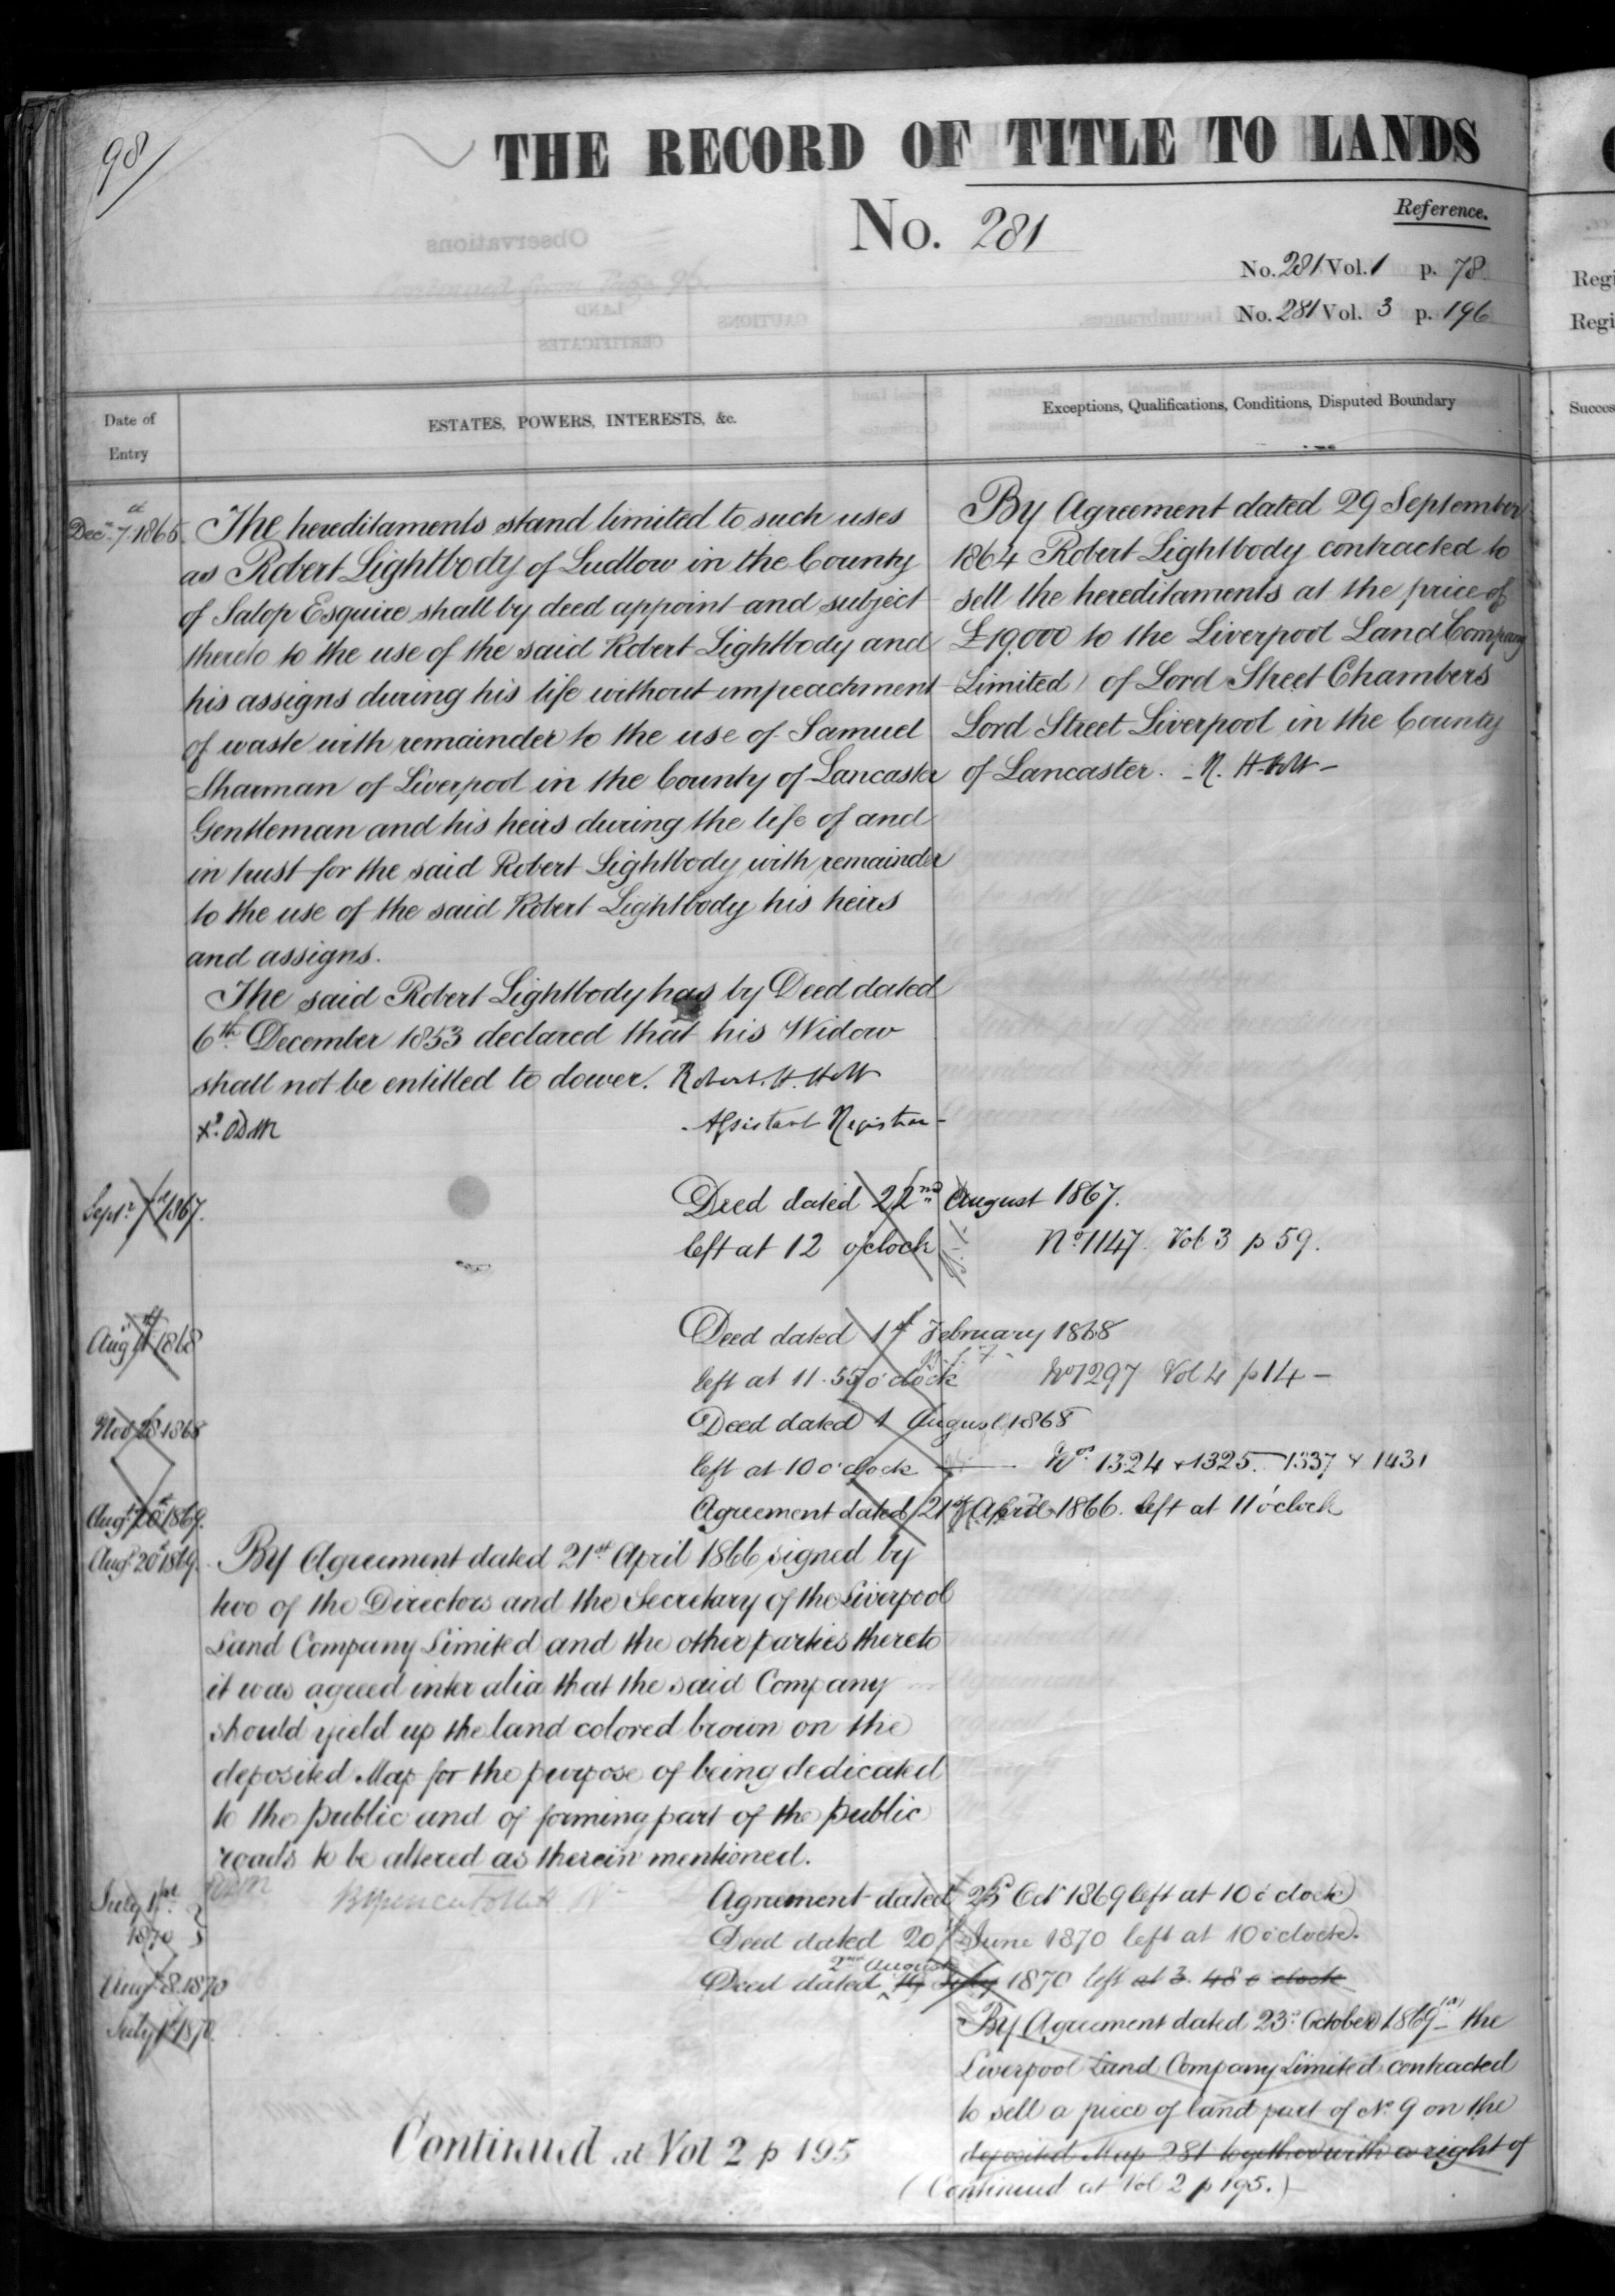 98/
THE RECORD OF TITLE TO LANDS
No. 281
Reference.
No. 281 Vol. 1 p. 78
No. 281 Vol. 3 p. 196
Date of
Entry
ESTATES, POWERS, INTERESTS, &c.
Exceptions, Qualifications, Conditions, Disputed Boundary
Decr. 7th 1865
The hereditaments stand limited to such uses
as Robert Lightbody of Ludlow in the County
of Salop Esquire shall by deed appoint and subject
thereto to the use of the said Robert Lightbody and
his assigns during his life without impeachment
of waste with remainder to the use of Samuel
Sharman of Liverpool in the County of Lancaster
Gentleman and his heirs during the life of and
in trust for the said Robert Lightbody with remainder
to the use of the said Robert Lightbody his heirs
and assigns.
The said Robert Lightbody has by Deed dated
6th December 1853 declared that his Widow
shall not be entitled to dower. Robert. H. Holt
Assistant Registrar -
By Agreement dated 29 September
1864 Robert Lightbody contracted to
sell the hereditaments at the price of
£19,000 to the Liverpool Land Company
(Limited) of Lord Street Chambers
Lord Street Liverpool in the County
of Lancaster. - R. H. Holt -
Septr. 7th 1867.
Deed dated 22nd August 1867.
left at 12 o'clock No. 1147. Vol 3 p 59.
Aug 11th 1868
Deed dated 1st February 1868
left at 11.55 o'clock No 1297 Vol 4 p 14 -
Nov 28 1868
Deed dated 1 August 1868
left at 10 o'clock Nos. 1324 & 1325. 1337 & 1431
Augt. 20th 1869.
Agreement dated 21st April 1866. left at 11 o'clock
Augt. 20th 1869.
By Agreement dated 21st April 1866 signed by
two of the Directors and the Secretary of the Liverpool
Land Company Limited and the other parties thereto
it was agreed inter alia that the said Company
should yield up the land colored brown on the
deposited Map for the purpose of being dedicated
to the public and of forming part of the public
roads to be altered as therein mentioned.
July 1st
1870 }
Agreement dated 23d Octr 1869 left at 10 o'clock
Deed dated 20th June 1870 left at 10 o'clock.
Augt. 8. 1870
2nd August
Deed dated July 1870 left at 3. 48 o'clock
July 1st 1870.
By Agreement dated 23rd October 1869 the
Liverpool Land Company Limited contracted
to sell a piece of land part of No. 9 on the
deposited Map 281 together with a right of
Continued at Vol 2 p 195
(Continued at Vol 2 p 195.)
Regi
Regi
Succes